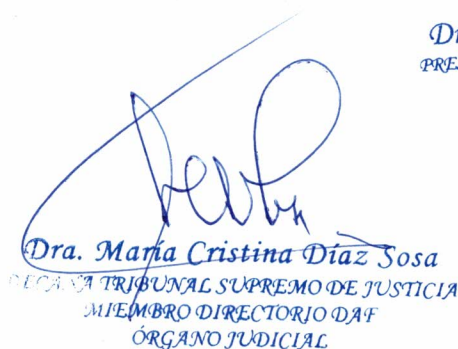 Dra. María Cristina Díaz Sosa
DECANA TRIBUNAL SUPREMO DE JUSTICIA
MIEMBRO DIRECTORIO DAF
ÓRGANO JUDICIAL